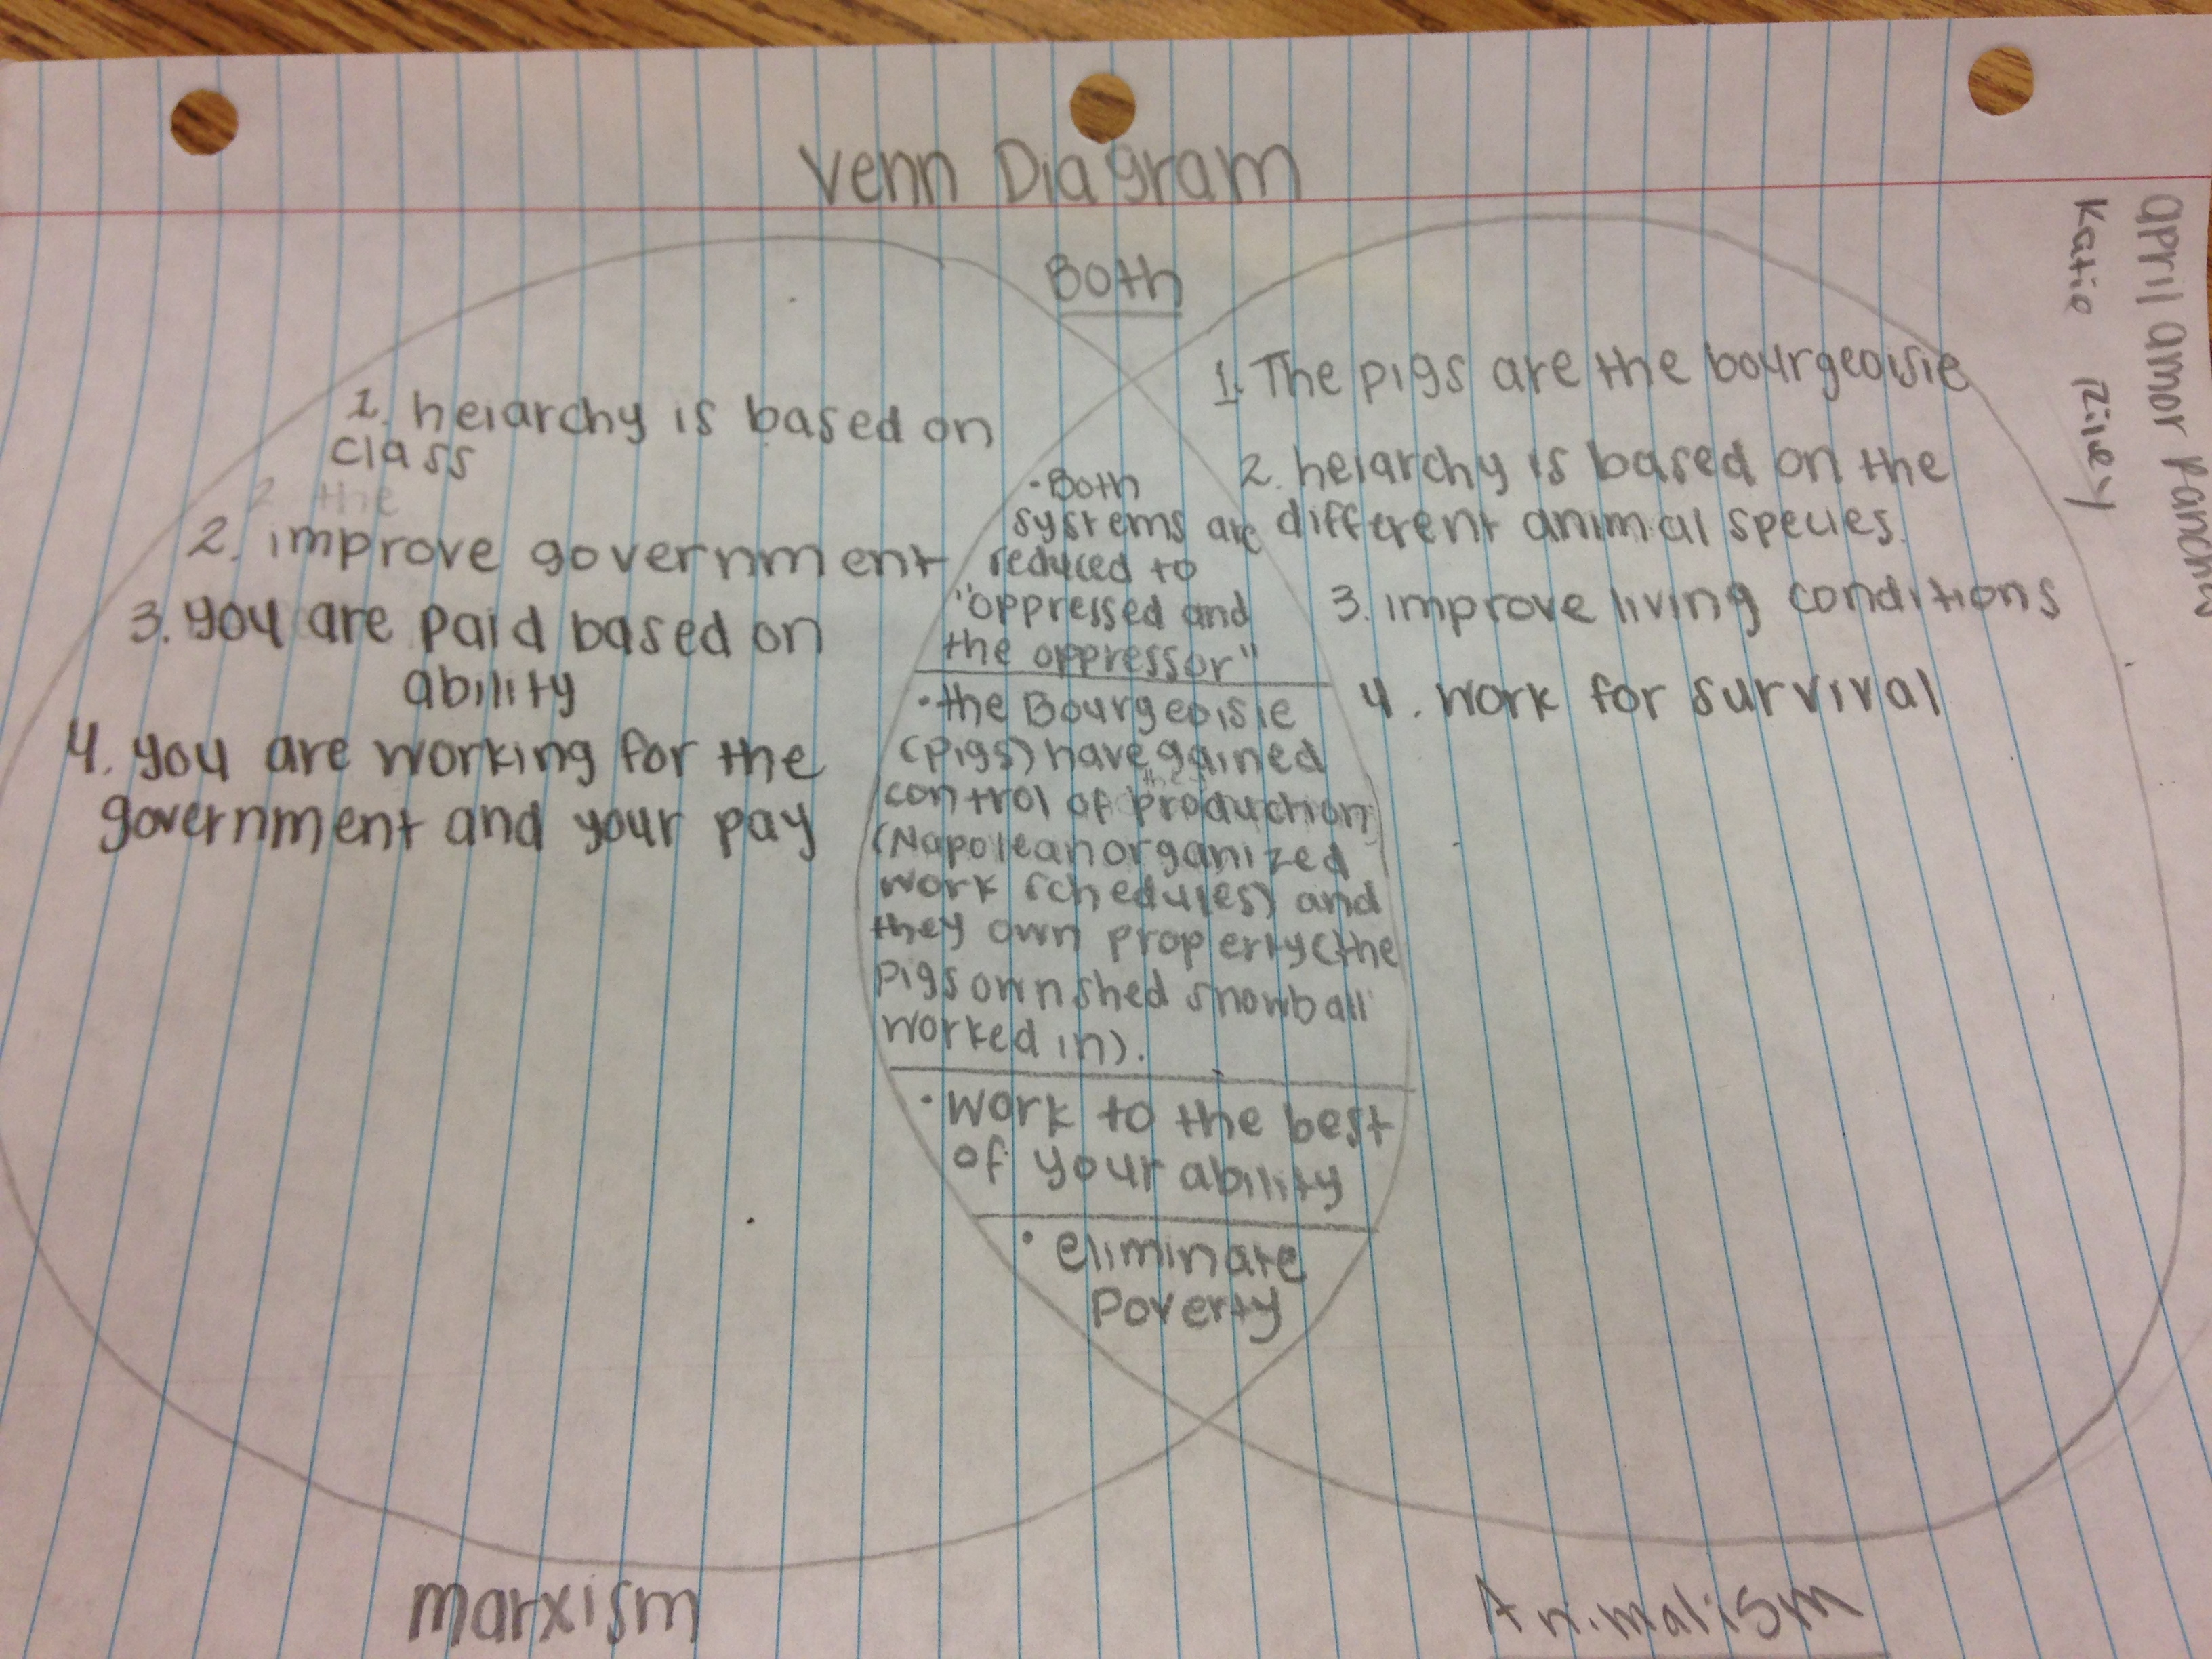 Venn Diagram
april amor Panchi
Katie Riley
Both
1. heiarchy is based on
class
2. the
2. improve government
3. you are paid based on
ability
4. you are working for the
government and your pay
• Both
systems are
reduced to
"oppressed and
the oppressor"
• the Bourgeoisie
(pigs) have gained
control of the production
(Napolean organized
work schedules) and
they own property (the
pigs own shed snowball
worked in).
• work to the best
of your ability
• eliminate
Poverty
1. The pigs are the bourgeoisie
2. heiarchy is based on the
different animal species.
3. improve living conditions
4. work for survival
marxism
Animalism